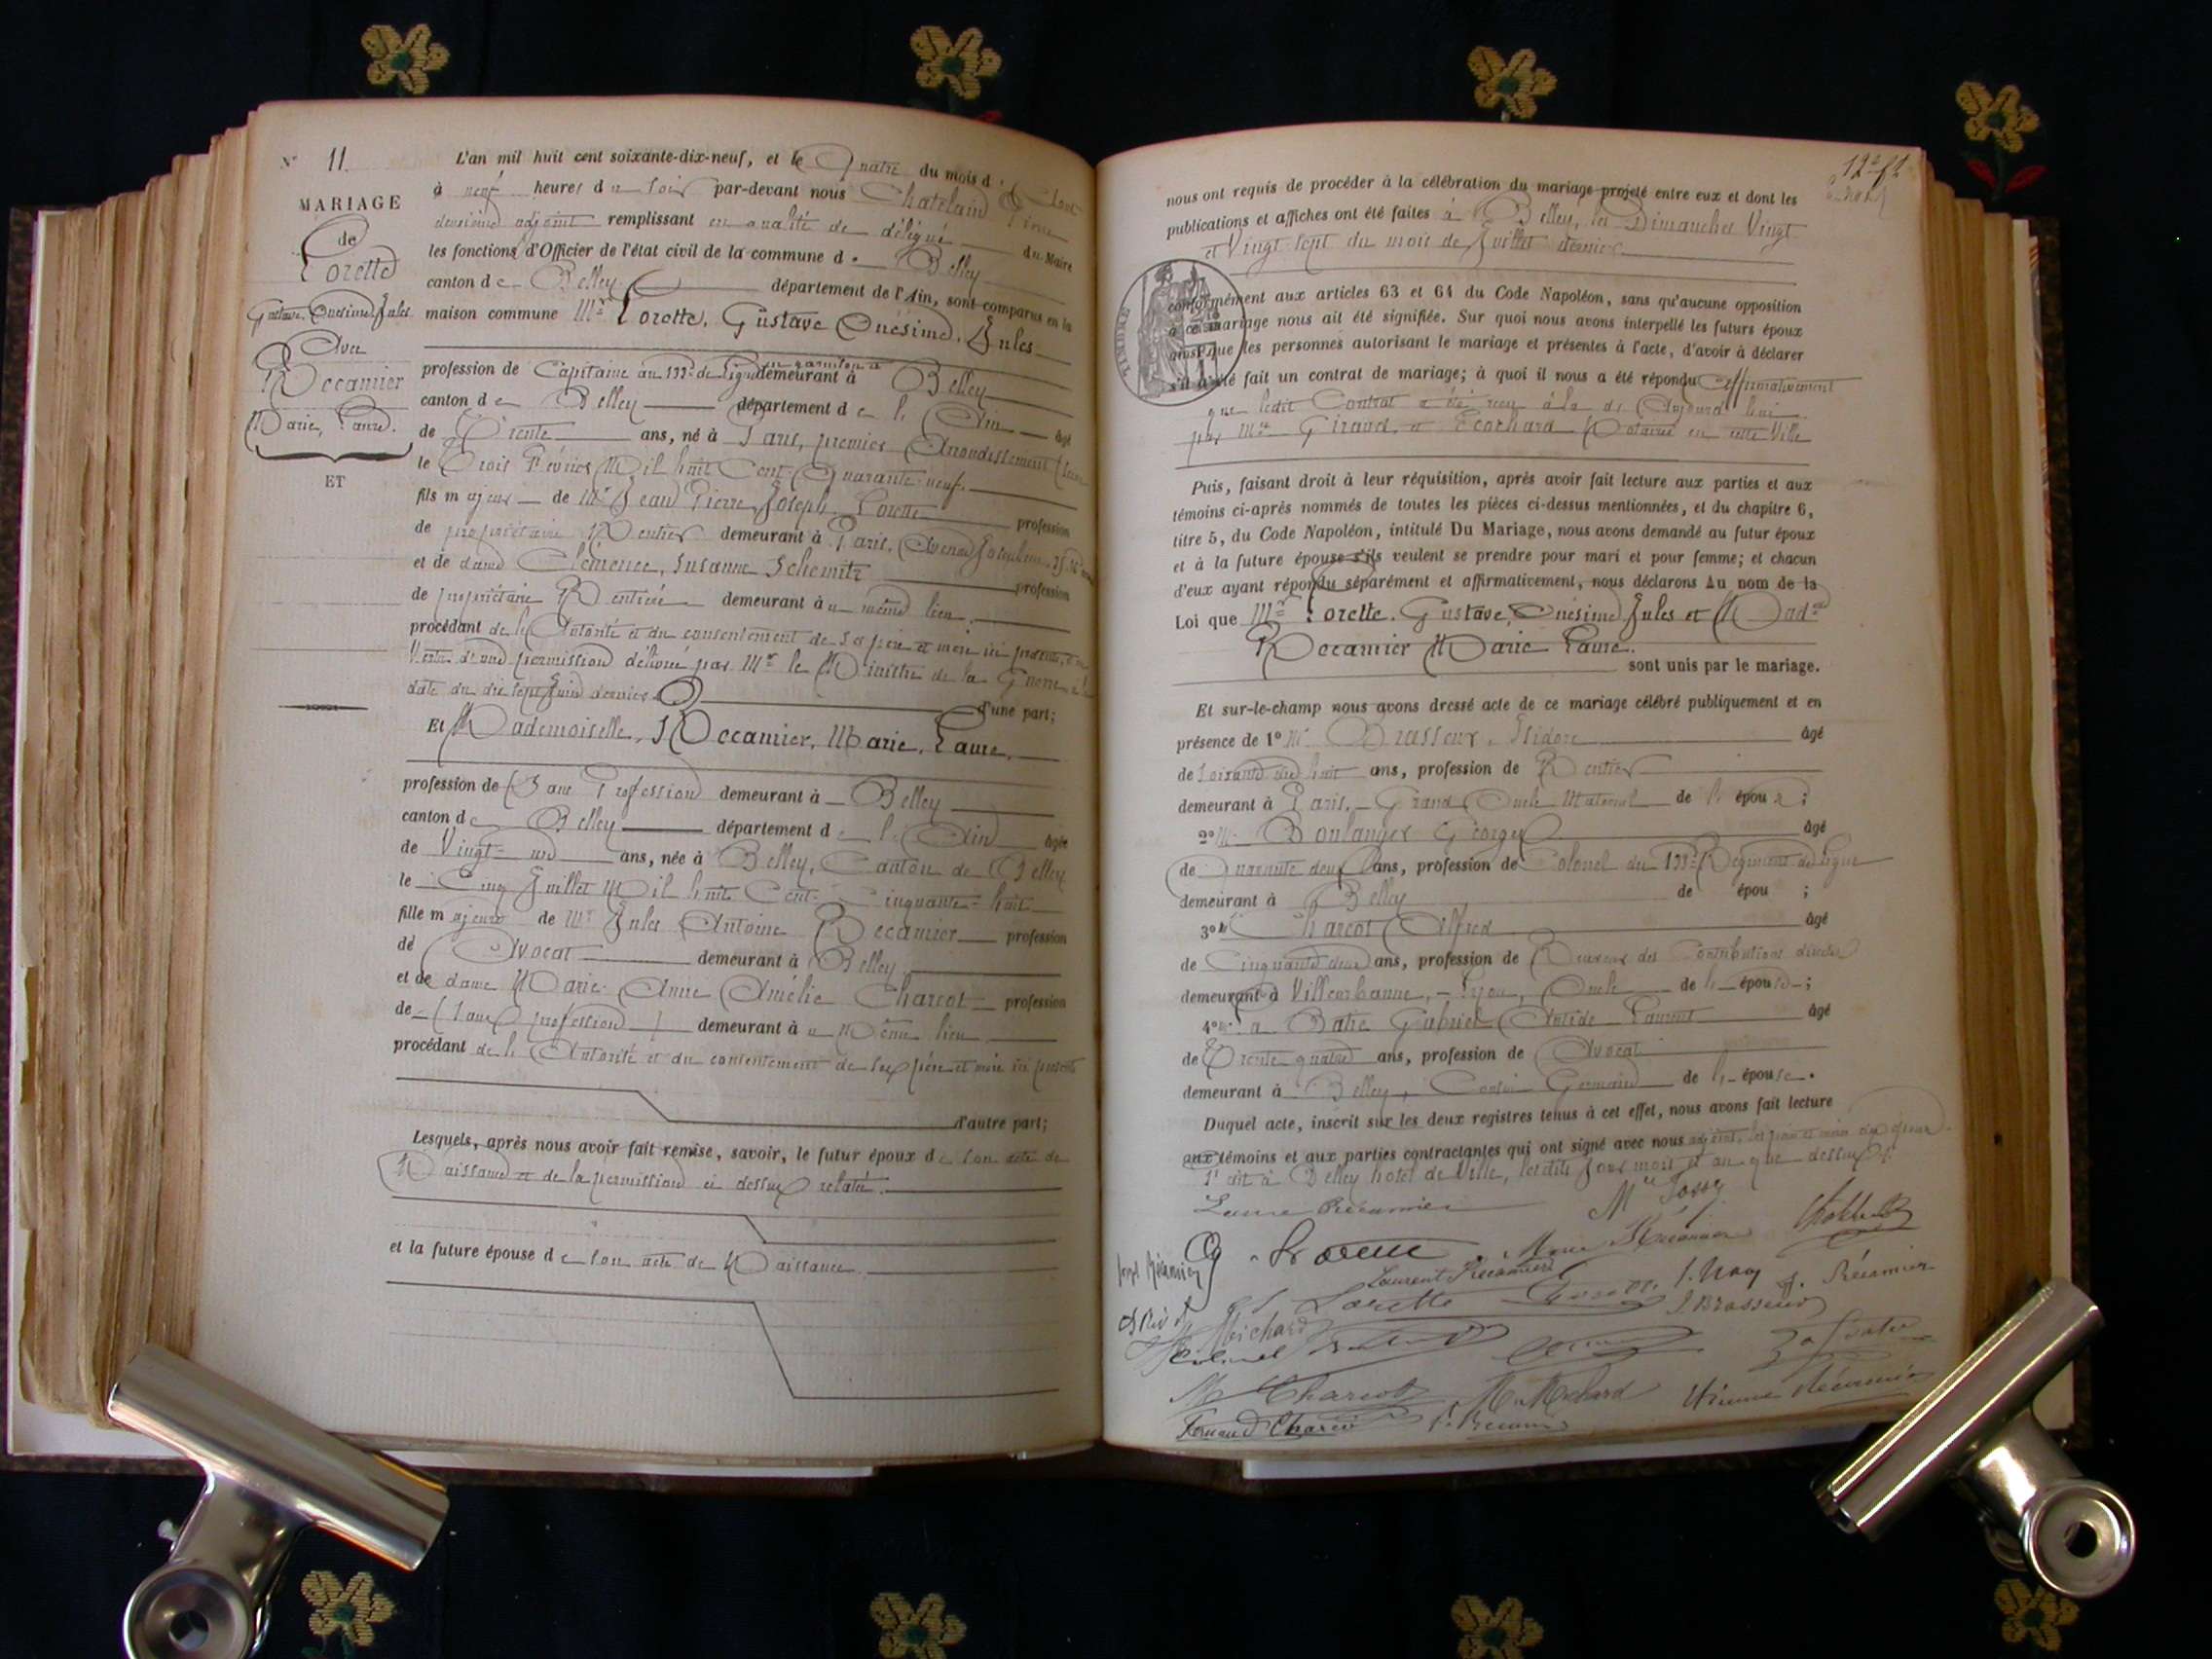 N° 11.
MARIAGE
de
Lorette
Gustave, Onésime, Jules
Avec
Récamier
Marie, Laure.
ET
L'an mil huit cent soixante-dix-neuf, et le Quatre du mois d'Août
à neuf heures du soir par-devant nous Chatelain
deuxième adjoint remplissant en qualité de délégué du Maire
les fonctions d'Officier de l'état civil de la commune de Belley
canton de Belley département de l'Ain, sont comparus en la
maison commune Mr Lorette, Gustave Onésime, Jules
profession de Capitaine au 133e de ligne en garnison à demeurant à Belley
canton de Belley département de l'Ain âgé
de Trente ans, né à Paris, premier Arrondissement
le Trois Février Mil huit Cent Quarante-neuf.
fils majeur de Mr Jean Pierre Joseph Lorette profession
de propriétaire Rentier demeurant à Paris, Avenue
et de dame Clémence, Susanne Schemitz profession
de propriétaire Rentière demeurant au même lieu.
procédant de l'Autorité et du consentement de ses père et mère ici présents,
Vertu d'une permission délivrée par Mr le Ministre de la Guerre
date du dix sept Juin dernier d'une part;
Et Mademoiselle, Récamier, Marie, Laure.
profession de (Sans Profession demeurant à Belley
canton de Belley département de l'Ain âgée
de Vingt-un ans, née à Belley, Canton de Belley
le Cinq Juillet Mil huit Cent Cinquante-huit
fille majeure de Mr Jules Antoine Récamier profession
de Avocat demeurant à Belley
et de dame Marie Anne Amélie Charcot profession
de (Sans profession) demeurant au Même lieu
procédant de l'Autorité et du consentement de ses père et mère ici présents
d'autre part;
Lesquels, après nous avoir fait remise, savoir, le futur époux de son acte de
Naissance et de la permission ci dessus relatée.
et la future épouse de son acte de Naissance
nous ont requis de procéder à la célébration du mariage projeté entre eux et dont les
publications et affiches ont été faites à Belley, les Dimanches Vingt
et Vingt sept du mois de Juillet dernier
TIMBRE
conformément aux articles 63 et 64 du Code Napoléon, sans qu'aucune opposition
à ce mariage nous ait été signifiée. Sur quoi nous avons interpellé les futurs époux
ainsi que les personnes autorisant le mariage et présentes à l'acte, d'avoir à déclarer
s'il a été fait un contrat de mariage; à quoi il nous a été répondu affirmativement
que ledit Contrat a été reçu à la de Aujourd'hui
par Mes Giraud, et Écochard Notaires en cette Ville
Puis, faisant droit à leur réquisition, après avoir fait lecture aux parties et aux
témoins ci-après nommés de toutes les pièces ci-dessus mentionnées, et du chapitre 6,
titre 5, du Code Napoléon, intitulé Du Mariage, nous avons demandé au futur époux
et à la future épouse s'ils veulent se prendre pour mari et pour femme; et chacun
d'eux ayant répondu séparément et affirmativement, nous déclarons Au nom de la
Loi que Mr Lorette, Gustave, Onésime Jules et Madlle
Récamier Marie Laure.
sont unis par le mariage.
Et sur-le-champ nous avons dressé acte de ce mariage célébré publiquement et en
présence de 1° Mr Brasseur, Isidore âgé
de Soixante dix huit ans, profession de Rentier
demeurant à Paris, Grand Oncle Maternel de l'époux;
2° Mr Boulanger Georges âgé
de Quarante deux ans, profession de Colonel du 133e Régiment de ligne
demeurant à Belley de épou ;
3° Charcot Alfred âgé
de Cinquante deux ans, profession de Receveur des Contributions directes
demeurant à Villeurbanne, Lyon, Oncle de l'épouse;
4° Gabriel Laurent âgé
de Trente quatre ans, profession de Avocat
demeurant à Belley, Cousin Germain de l'épouse.
Duquel acte, inscrit sur les deux registres tenus à cet effet, nous avons fait lecture
aux témoins et aux parties contractantes qui ont signé avec nous adjoint, les père et mère des époux.
Fait à Belley hôtel de Ville, lesdits Jour mois et an que dessus
Laure Récamier
G. Lorette
Marie Récamier
Laurent Récamier
Lorette
J. Récamier
J Brasseur
Michard
Colonel
M Charcot
M. Michard
Etienne Récamier
Fernand Charcot